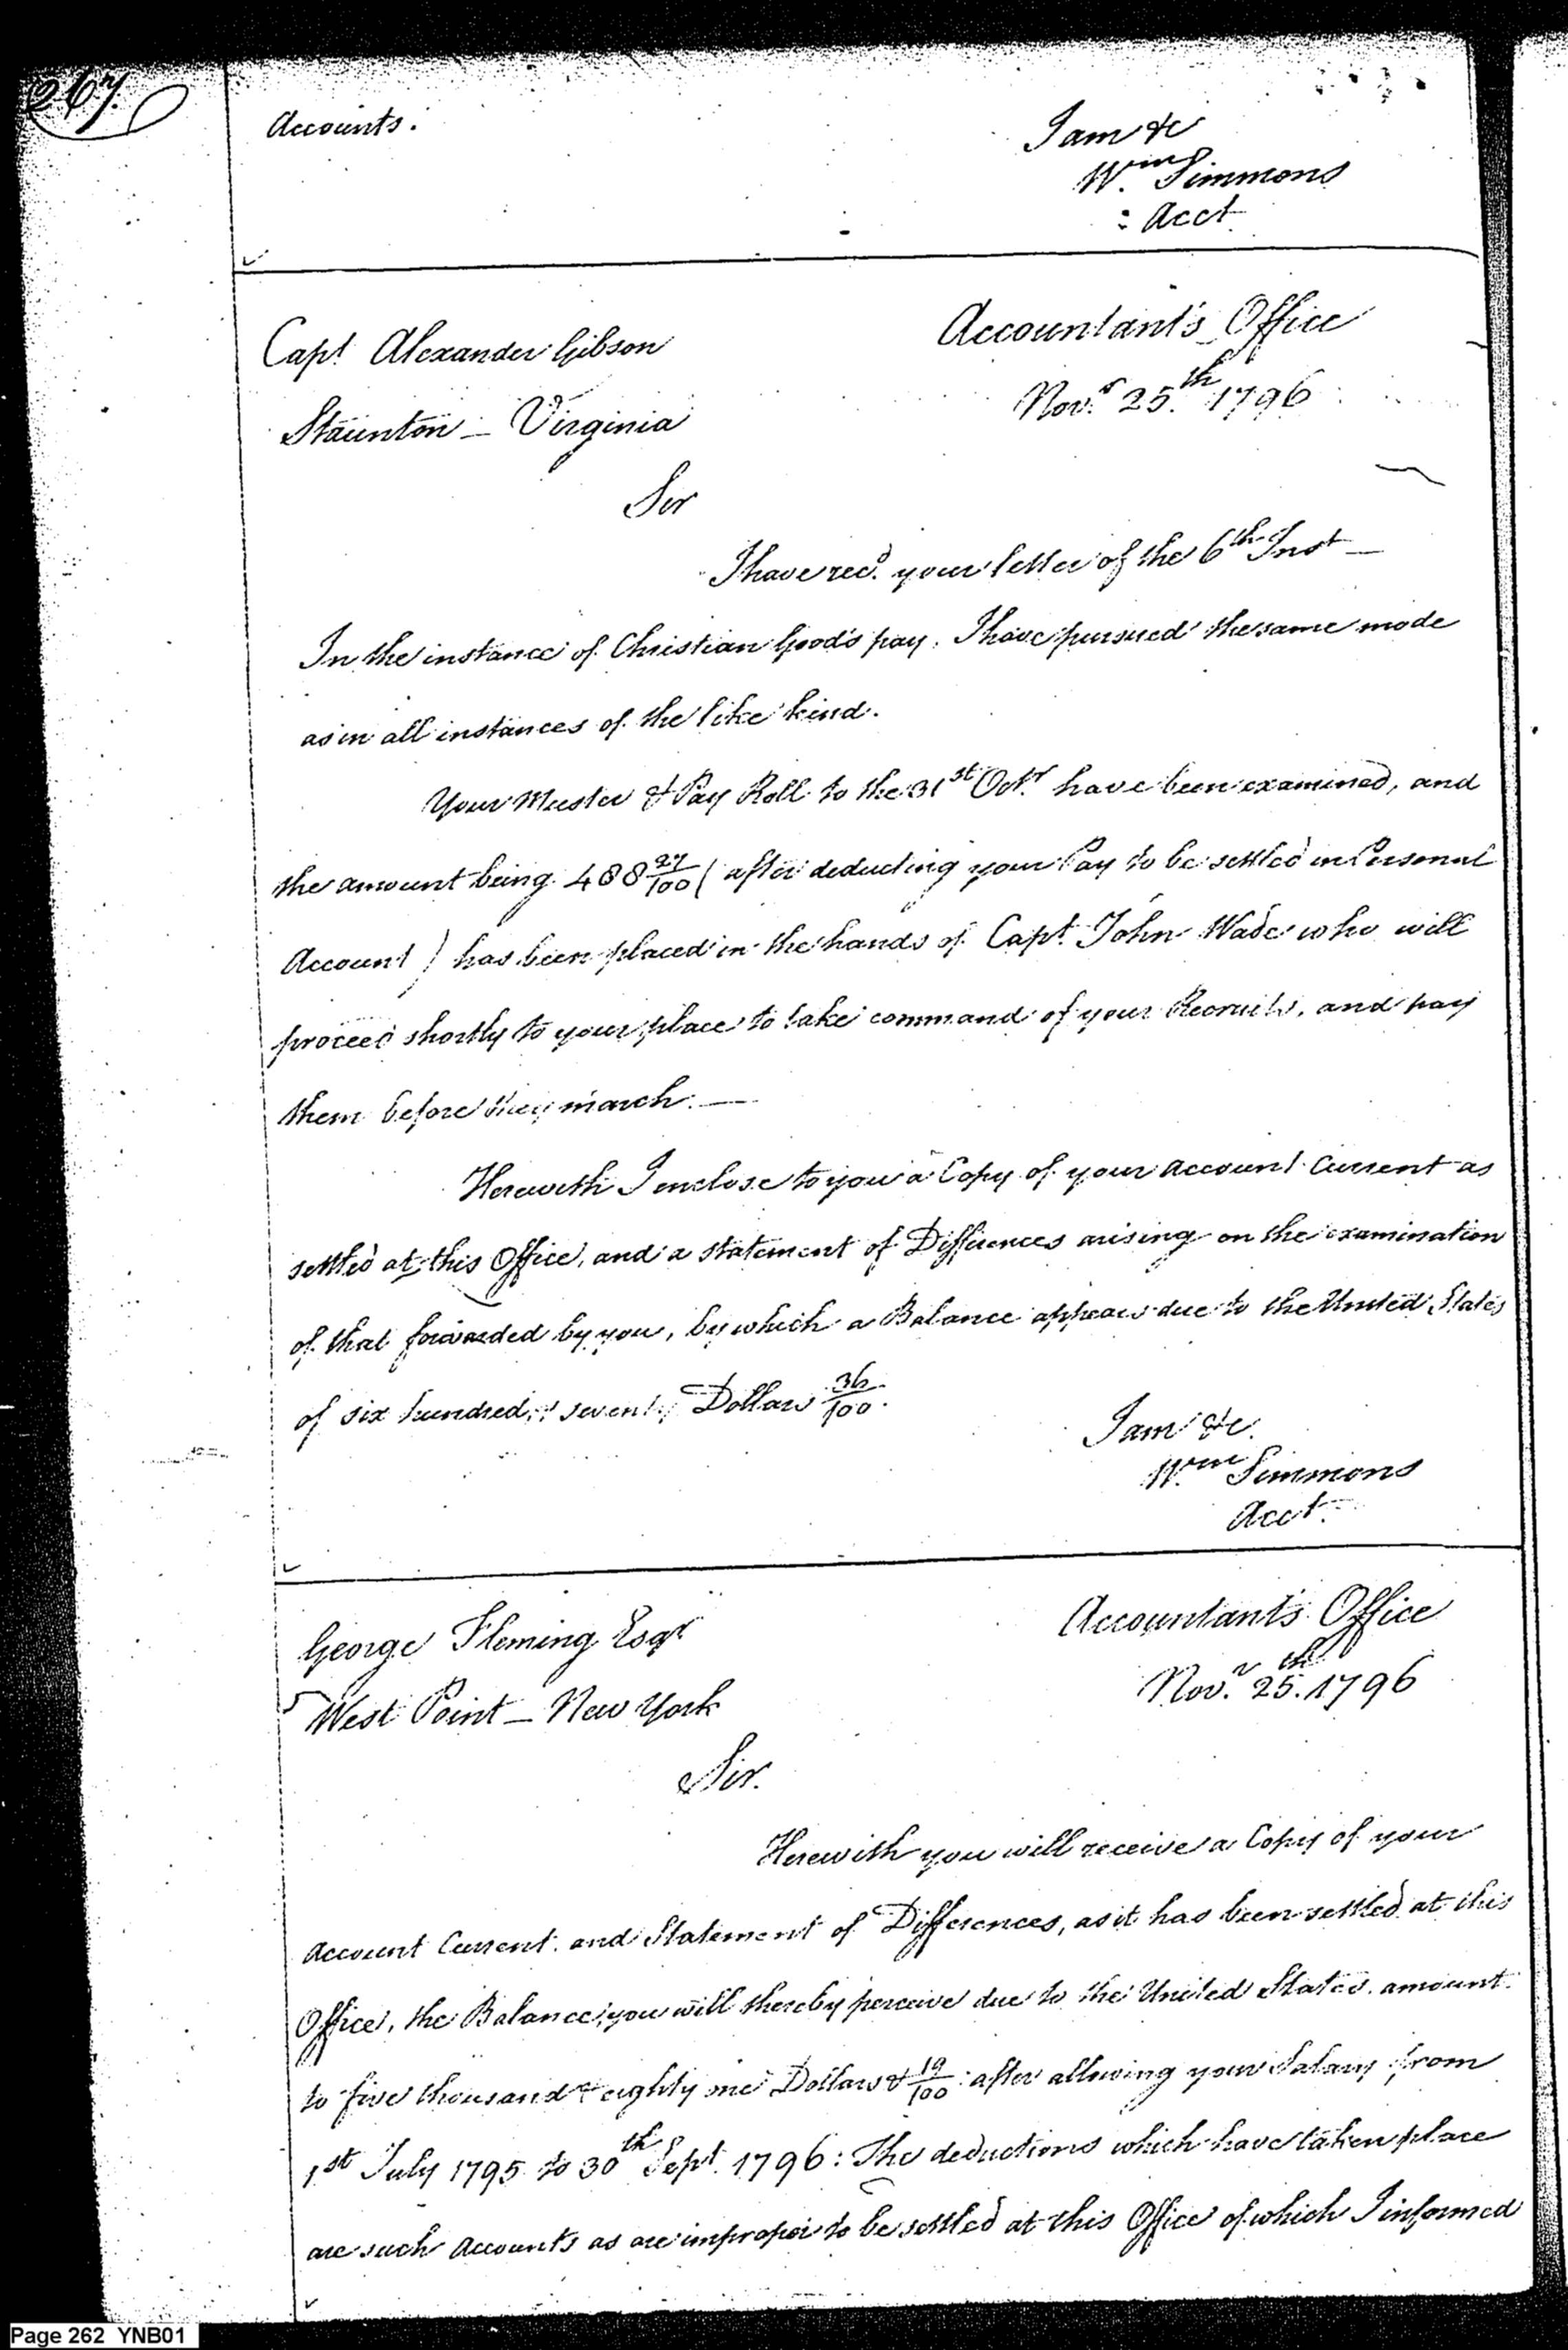 267
Accounts.
I am &c
Wm Simmons
: Acct
Capt Alexander Gibson
Accountant's Office
Staunton _ Virginia
Novr 25th 1796
Sir
I have recd. your letter of the 6th Inst _
In the instance of Christian Good's pay, I have pursued the same mode
as in all instances of the like kind.
Your Muster & Pay Roll to the 31st Octr have been examined, and
the amount being 488 27/100 ( after deducting your Pay to be settled in Personal
Account ) has been placed in the hands of Capt. John Wade who will
proceed shortly to your place to take command of your Recruits, and pay
them before they march. _
Herewith I enclose to you a Copy of your account Current as
settled at this Office, and a statement of Differences arising on the examination
of that forwarded by you, by which a Balance appears due to the United States
of six hundred & seventy Dollars 36/100.
I am &c.
Wm Simmons
Acct.
George Fleming Esqr
Accountant's Office
West Point _ New York
Novr 25th. 1796
Sir.
Herewith you will receive a Copy of your
account Current. and Statement of Differences, as it has been settled at this
Office, the Balance, you will thereby perceive due to the United States. amount
to five thousand & eighty one Dollars & 19/100 after allowing your Salary from
1st July 1795 to 30th Sept. 1796: The deductions which have taken place
are such accounts as are improper to be settled at this Office of which I informed
Page 262 YNB01